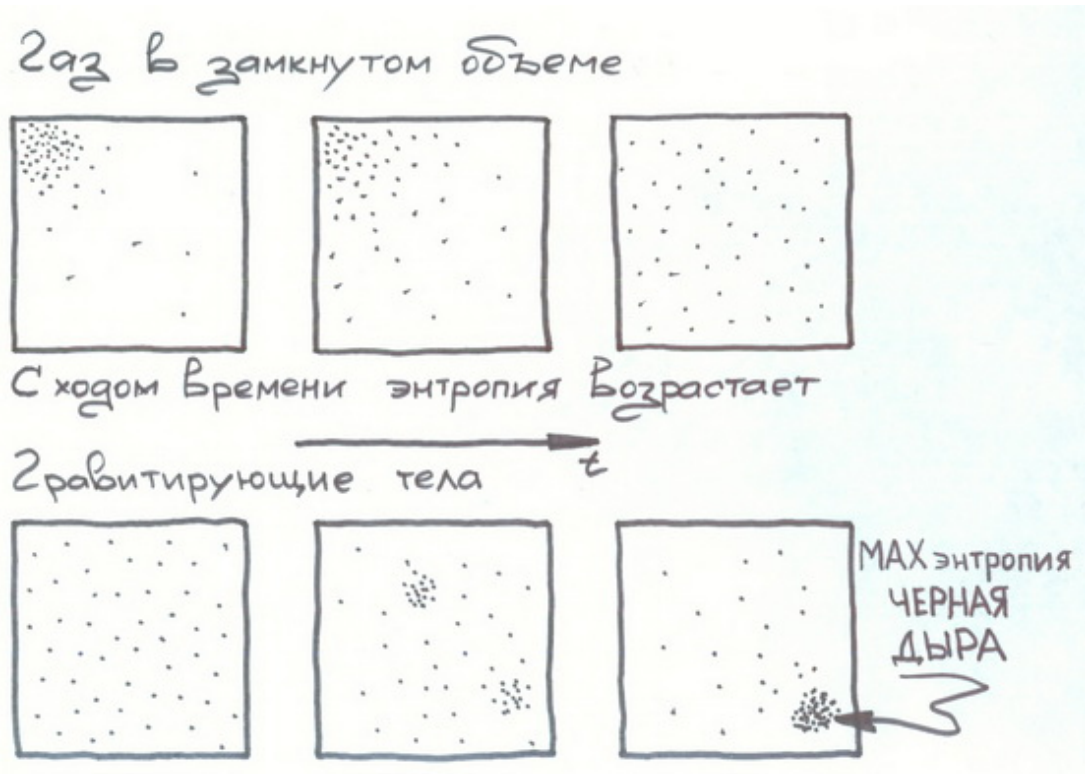 Газ в замкнутом объеме
С ходом времени энтропия возрастает
t
Гравитирующие тела
MAX энтропия
ЧЕРНАЯ
ДЫРА